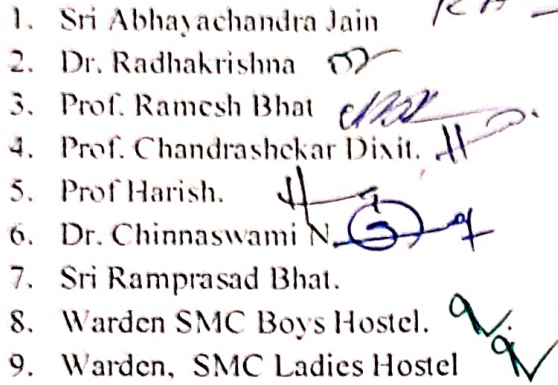 1. Sri Abhayachandra Jain
2. Dr. Radhakrishna
3. Prof. Ramesh Bhat
4. Prof. Chandrashekar Dixit.
5. Prof Harish.
6. Dr. Chinnaswami N.
7. Sri Ramprasad Bhat.
8. Warden SMC Boys Hostel.
9. Warden, SMC Ladies Hostel